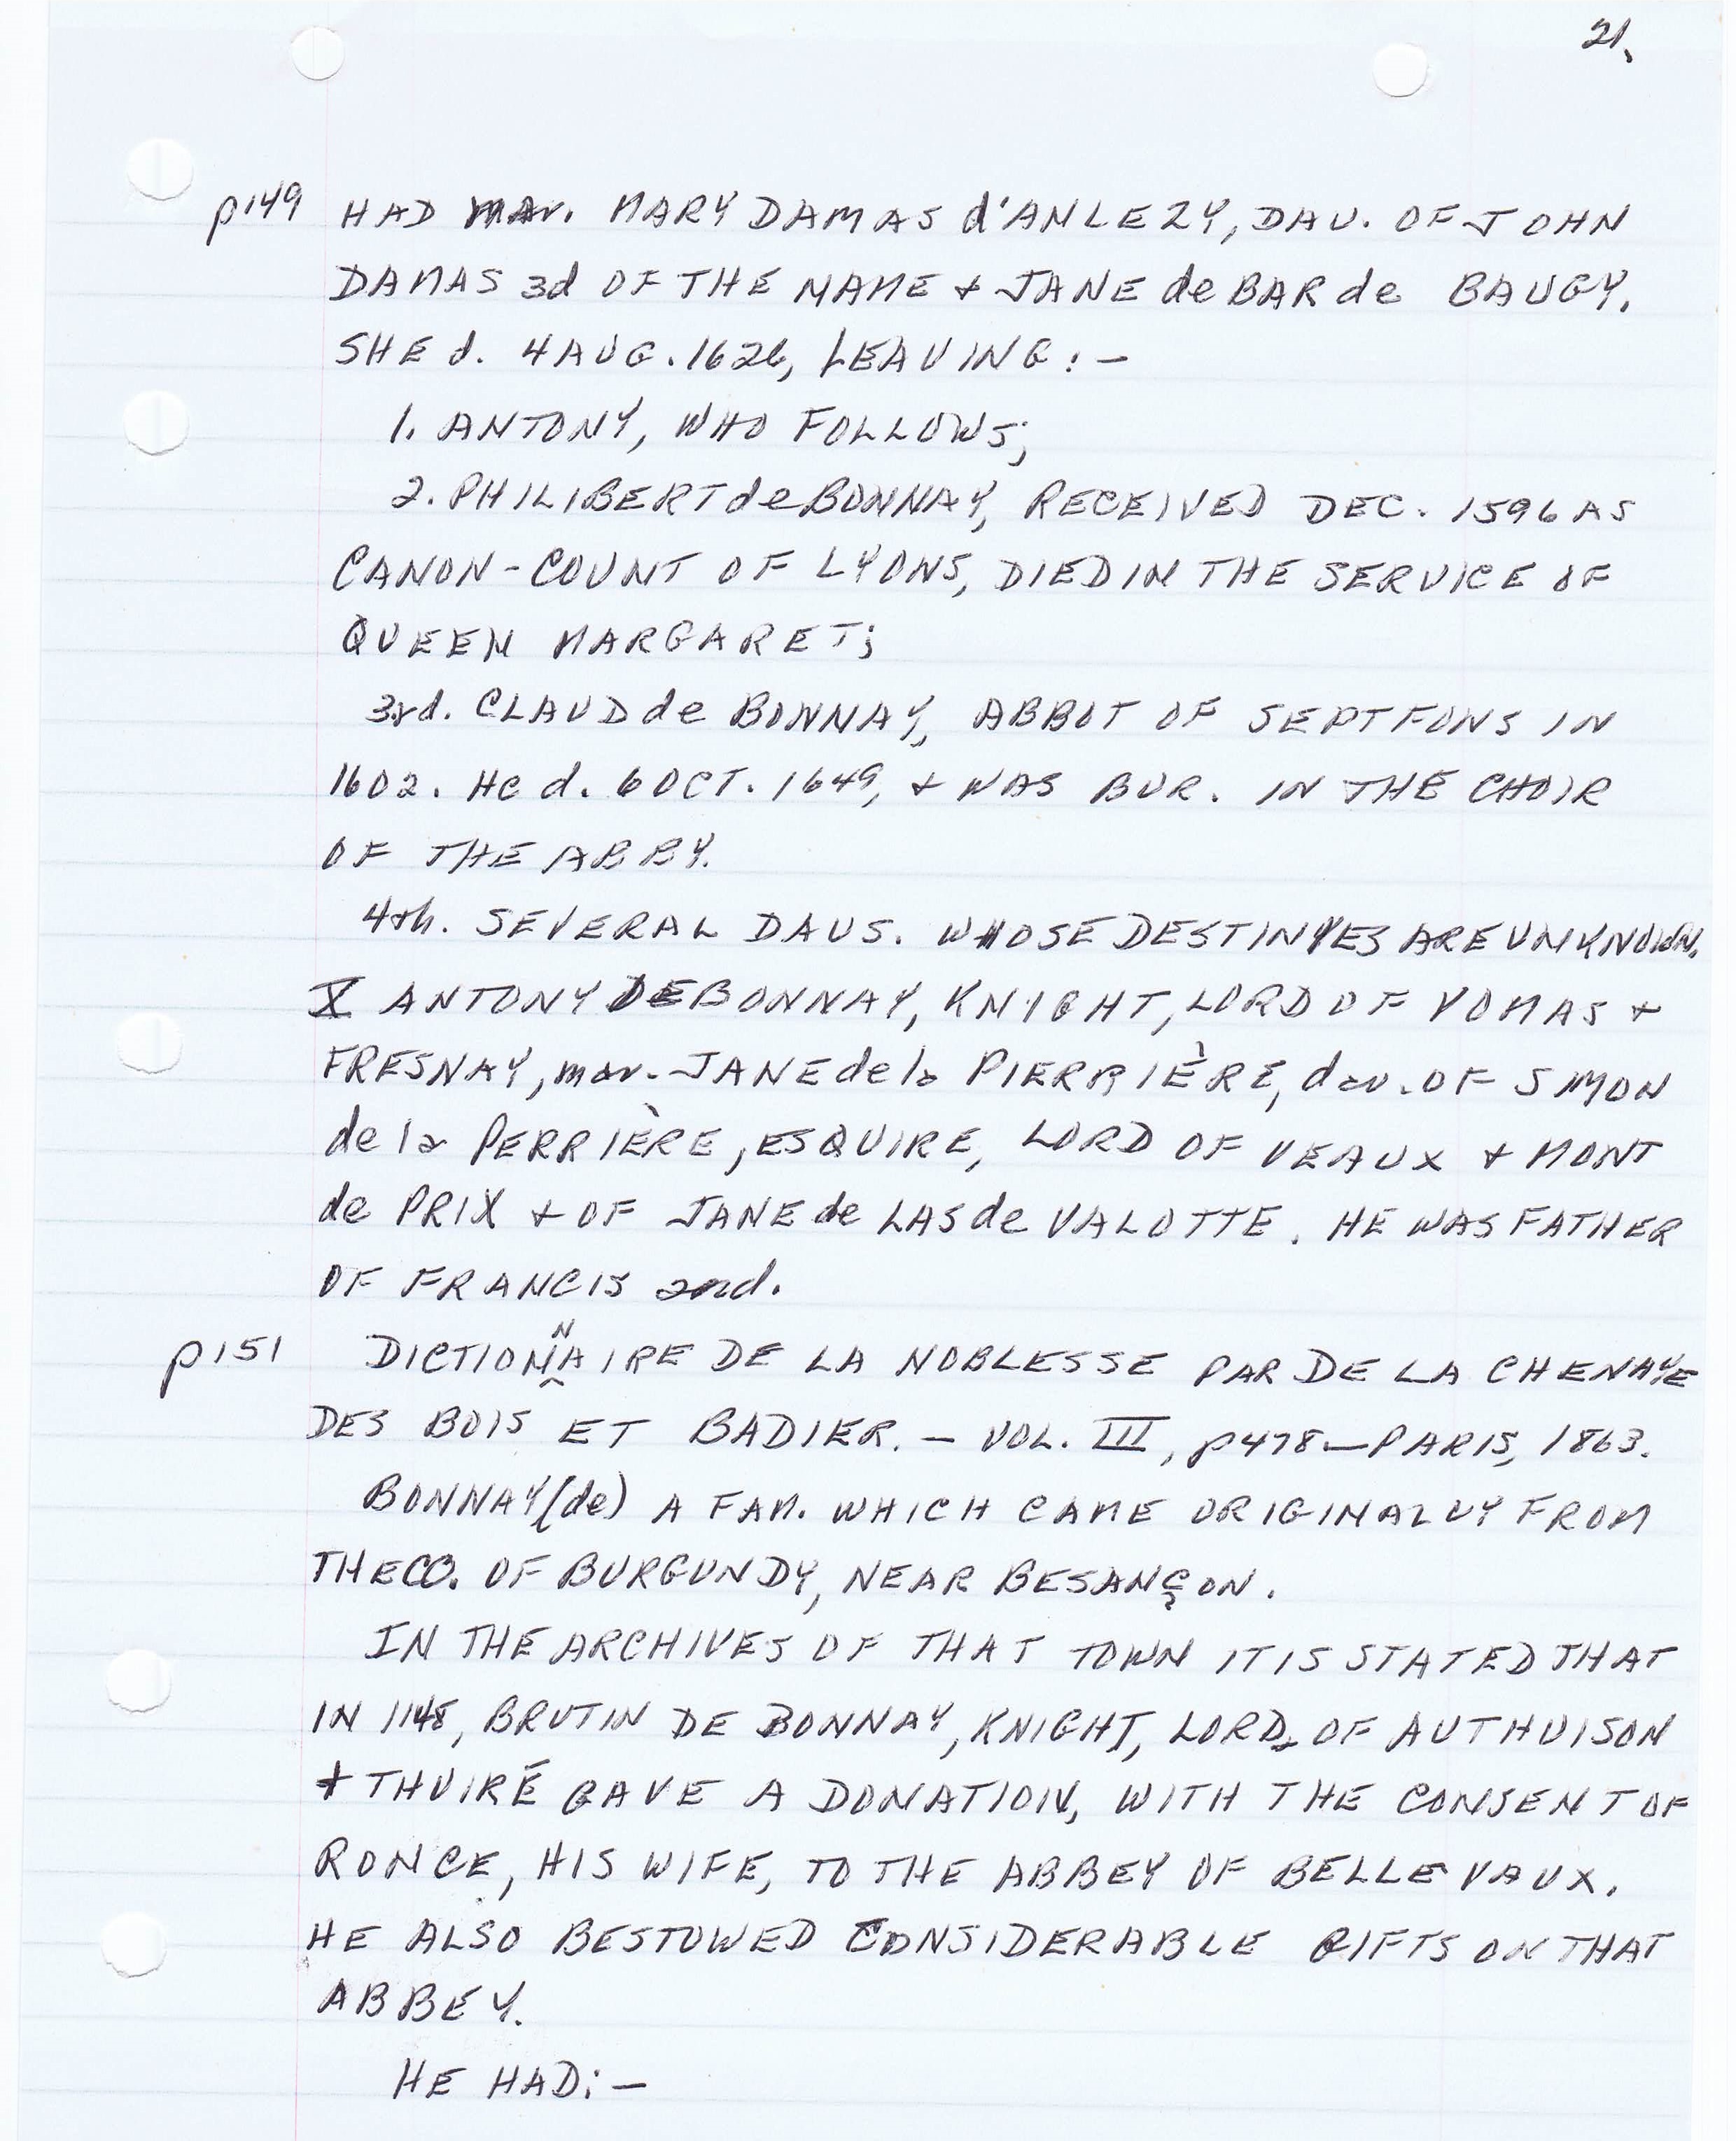 21.
p149 HAD mar. MARY DAMAS d'ANLEZY, DAU. OF JOHN
DAMAS 3d OF THE NAME + JANE de BAR de BAUGY.
SHE d. 4 AUG. 1626, LEAVING:-
1. ANTONY, WHO FOLLOWS;
2. PHILIBERT de BONNAY, RECEIVED DEC. 1596 AS
CANON-COUNT OF LYONS, DIED IN THE SERVICE OF
QUEEN MARGARET;
3rd. CLAUD de BONNAY, ABBOT OF SEPTFONS IN
1602. He d. 6 OCT. 1649, + WAS BUR. IN THE CHOIR
OF THE ABBY.
4th. SEVERAL DAUS. WHOSE DESTINYES ARE UNKNOWN.
X ANTONY DE BONNAY, KNIGHT, LORD OF VOMAS +
FRESNAY, mar. JANE de la PIERRIÈRE, dau. OF SIMON
de la PERRIÈRE, ESQUIRE, LORD OF VEAUX + MONT
de PRIX + OF JANE de LAS de VALOTTE. HE WAS FATHER
OF FRANCIS 2nd.
p151 DICTIONNAIRE DE LA NOBLESSE PAR DE LA CHENAYE
DES BOIS ET BADIER. - VOL. III, p478 - PARIS, 1863.
BONNAY (de) A FAM. WHICH CAME ORIGINALLY FROM
THE CO. OF BURGUNDY, NEAR BESANÇON.
IN THE ARCHIVES OF THAT TOWN IT IS STATED THAT
IN 1148, BRUTIN DE BONNAY, KNIGHT, LORD OF AUTHUISON
+ THUIRÉ GAVE A DONATION, WITH THE CONSENT OF
RONCE, HIS WIFE, TO THE ABBEY OF BELLEVAUX.
HE ALSO BESTOWED CONSIDERABLE GIFTS ON THAT
ABBEY.
HE HAD:-